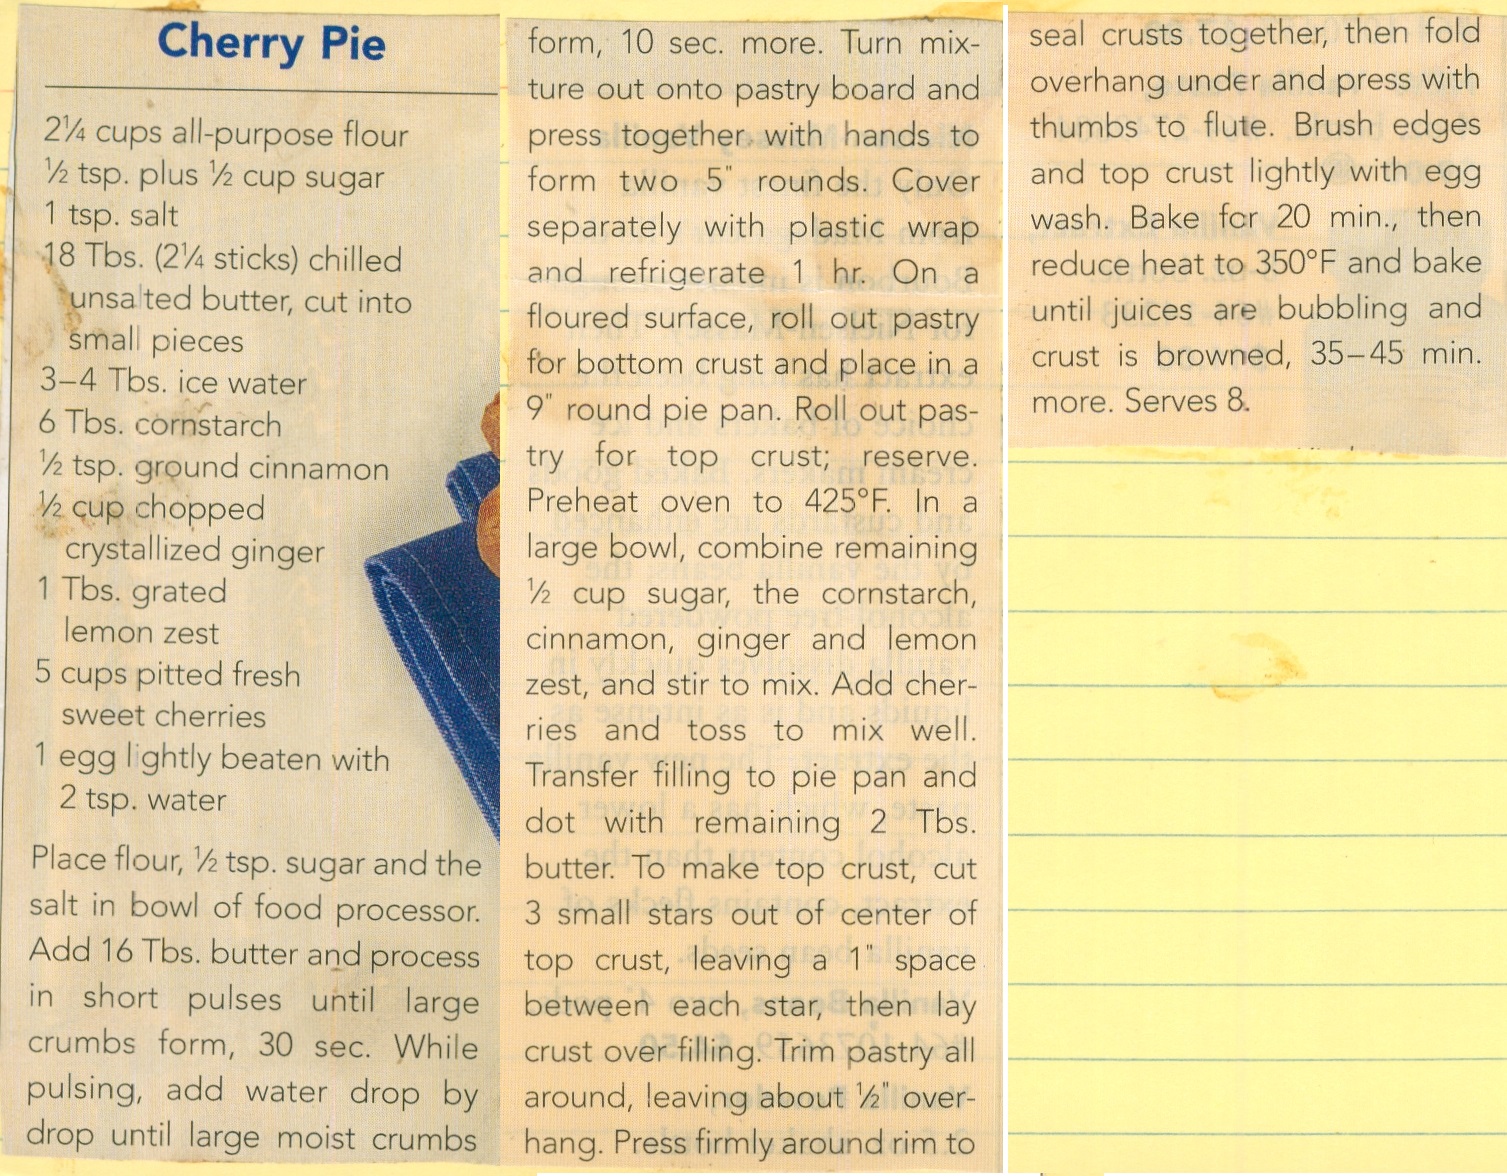 Cherry Pie
2¼ cups all-purpose flour
½ tsp. plus ½ cup sugar
1 tsp. salt
18 Tbs. (2¼ sticks) chilled
unsalted butter, cut into
small pieces
3–4 Tbs. ice water
6 Tbs. cornstarch
½ tsp. ground cinnamon
½ cup chopped
crystallized ginger
1 Tbs. grated
lemon zest
5 cups pitted fresh
sweet cherries
1 egg lightly beaten with
2 tsp. water
Place flour, ½ tsp. sugar and the
salt in bowl of food processor.
Add 16 Tbs. butter and process
in short pulses until large
crumbs form, 30 sec. While
pulsing, add water drop by
drop until large moist crumbs
form, 10 sec. more. Turn mix-
ture out onto pastry board and
press together with hands to
form two 5" rounds. Cover
separately with plastic wrap
and refrigerate 1 hr. On a
floured surface, roll out pastry
for bottom crust and place in a
9" round pie pan. Roll out pas-
try for top crust; reserve.
Preheat oven to 425°F. In a
large bowl, combine remaining
½ cup sugar, the cornstarch,
cinnamon, ginger and lemon
zest, and stir to mix. Add cher-
ries and toss to mix well.
Transfer filling to pie pan and
dot with remaining 2 Tbs.
butter. To make top crust, cut
3 small stars out of center of
top crust, leaving a 1" space
between each star, then lay
crust over filling. Trim pastry all
around, leaving about ½" over-
hang. Press firmly around rim to
seal crusts together, then fold
overhang under and press with
thumbs to flute. Brush edges
and top crust lightly with egg
wash. Bake for 20 min., then
reduce heat to 350°F and bake
until juices are bubbling and
crust is browned, 35–45 min.
more. Serves 8.